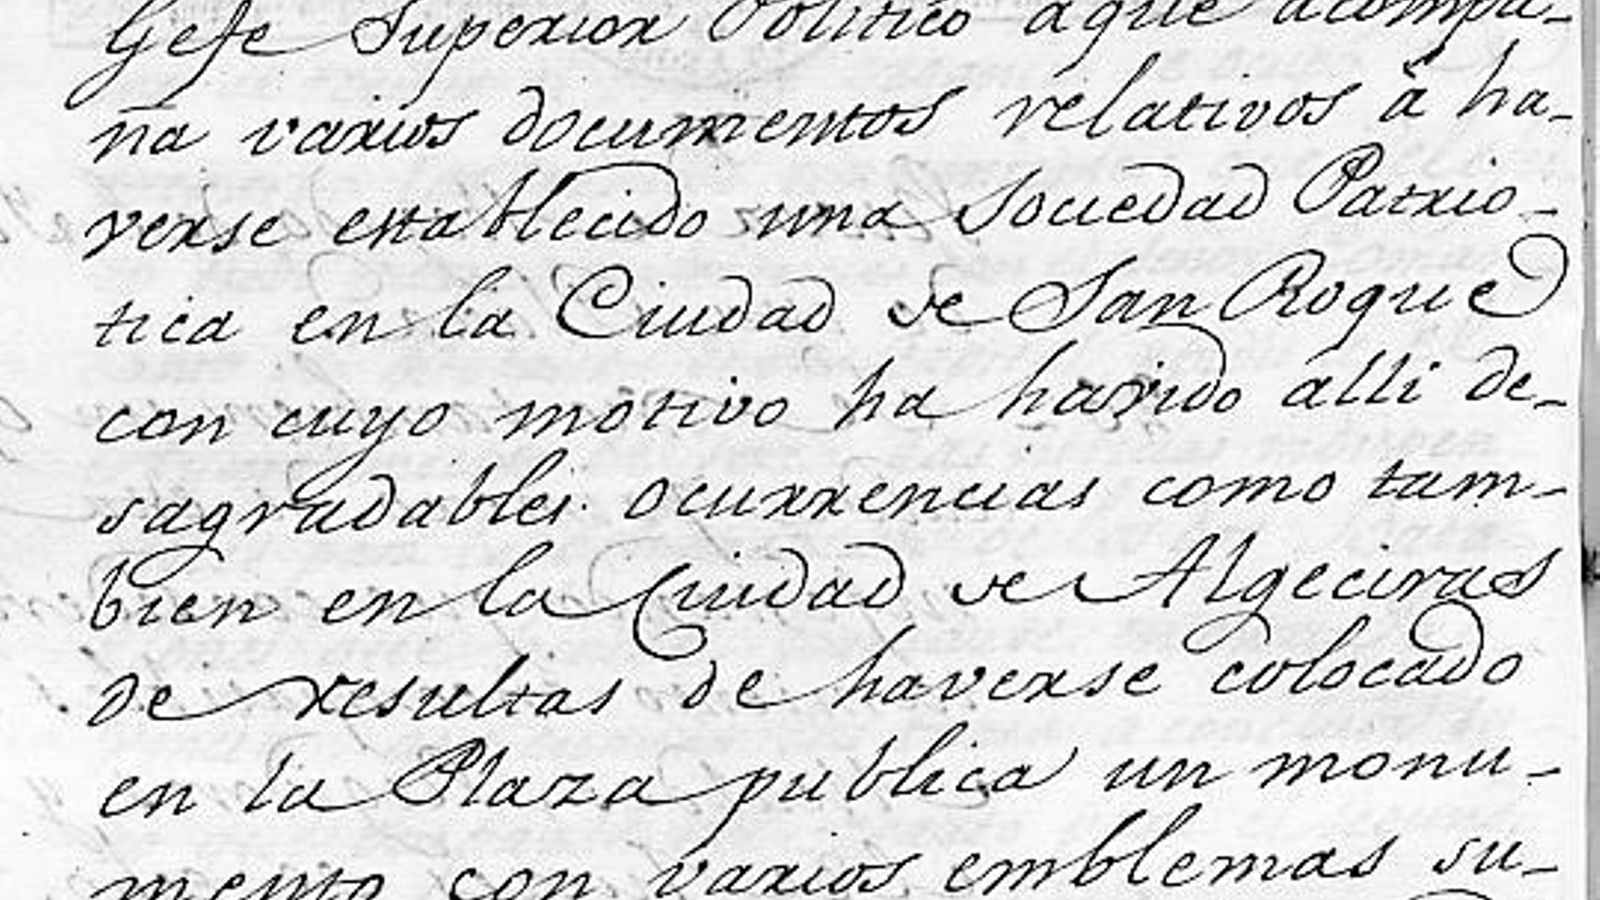 Gefe Superior Politico aque acompa-
ña varios documentos relativos à ha-
verse establecido una Sociedad Patrio-
tica en la Ciudad de San Roque
con cuyo motivo ha havido alli de-
sagradables ocurrencias como tam-
bien en la Ciudad de Algeciras
de resultas de haverse colocado
en la Plaza publica un monu-
mento con varios emblemas su-